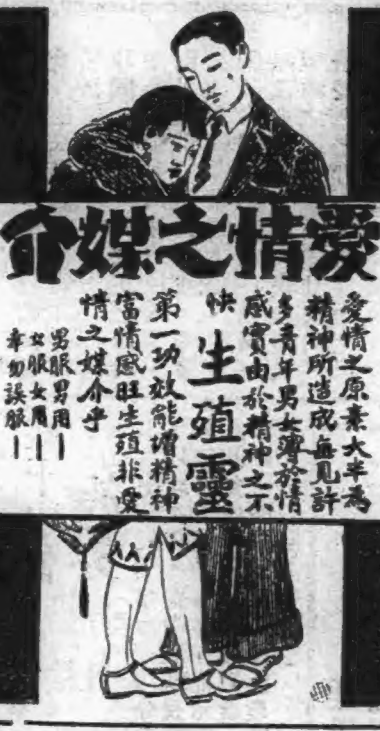 愛情之媒介
愛情之原素大半為
精神所造成每見許
多青年男女薄於情
感實由於精神之不
快
生殖靈
第一功效能增精神
富情感旺生殖非愛
情之媒介乎
男服男用—
女服女用—
幸勿誤服—